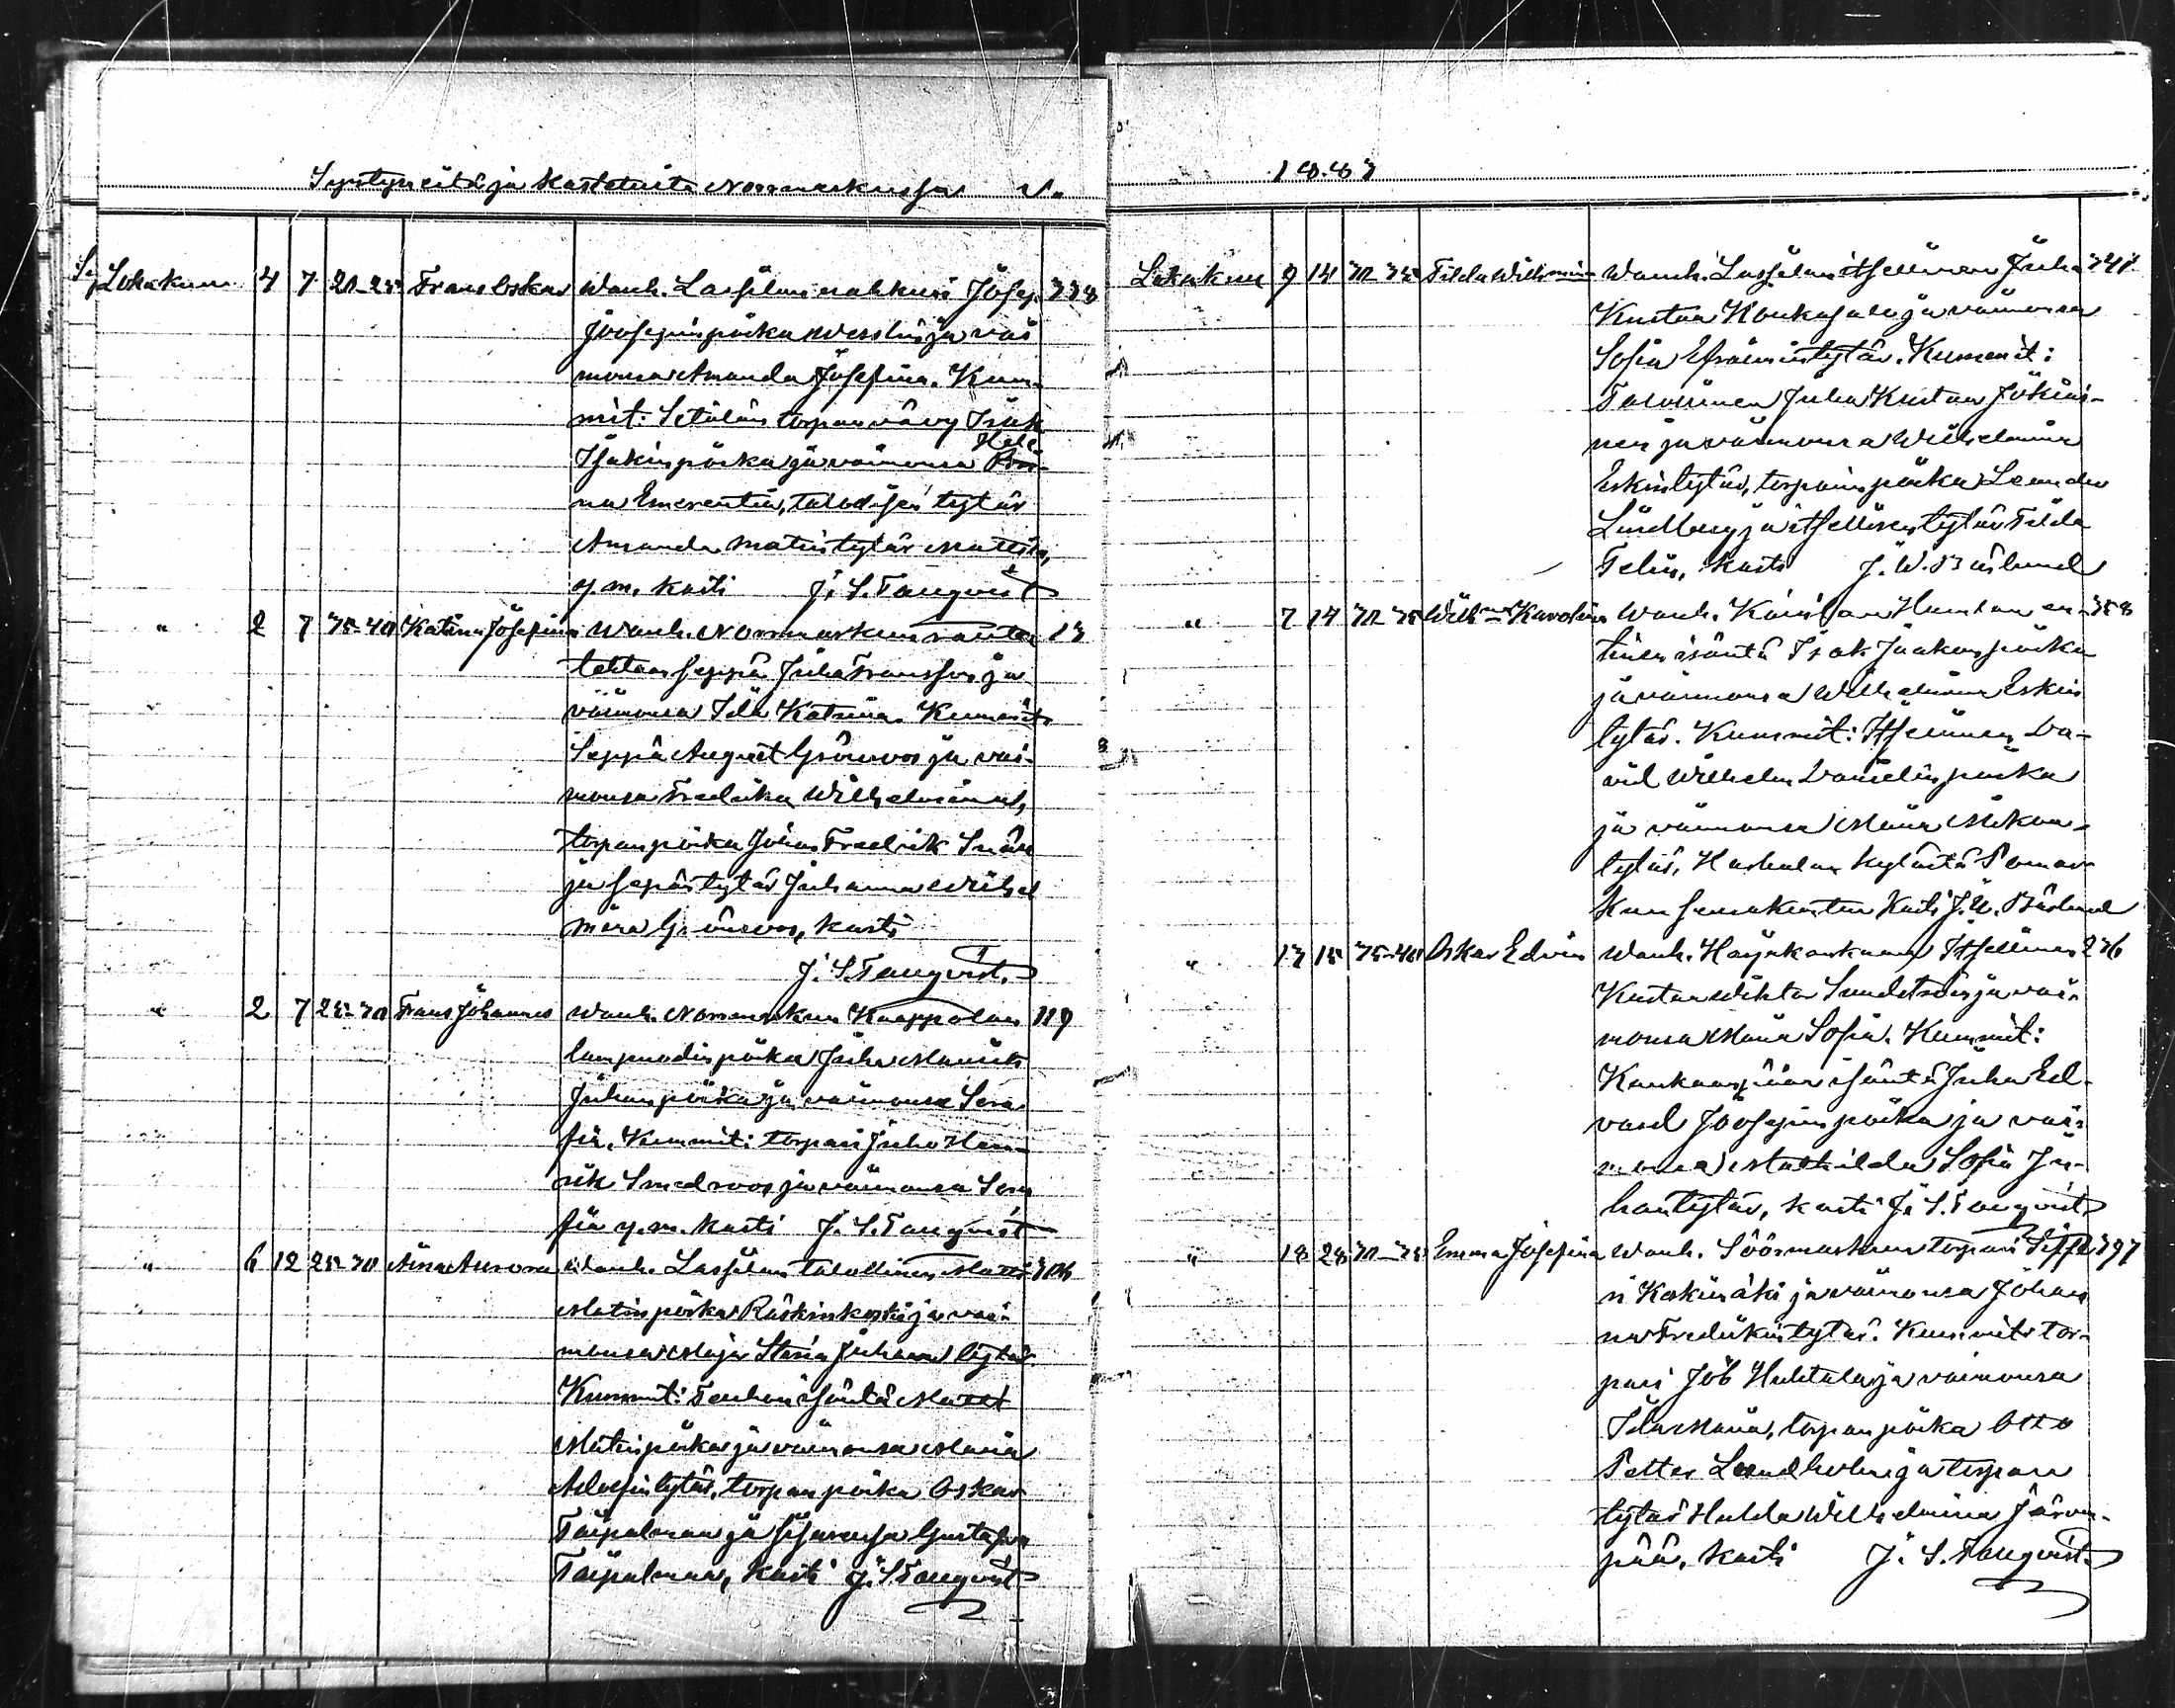 Syntyneitä ja kastetuita Normarkussa v.
Lokakuu 4 7 20-25 Frans Oskar Wanh. Lassilan nahkuri Josep 338
Joosepinpoika Wesslin ja vai
monsa Amanda Josefina. Kum-
mit: Setälän torpan vävy Isak
Hele
Isakinpoika ja vaimonsa
na Emerentia, talollisen tytär
Amanda Matintytär Mattila,
y. m. kasti J. S. Tanqvist
" 2 7 35-40 Katrina Josefina Wanh. Normarkun rauta 13
tehtaan seppä Juha Fransson ja
vaimonsa Ida Katrina. Kummit:
Seppä August Grönroos ja vai-
monsa Fredrika Wilhelmina,
torpanpoika Johan Fredrik Snäll
ja sepän tytär Juhanna Wilhel
mina Grönroos, kasti
J. S. Tanqvist.
" 2 7 25-30 Frans Johannes Wanh. Normarkun Knaappalan 119
lampuodinpoika Juha Maurits
Juhanpoika ja vaimonsa Sera
fia. Kummit: torpari Juho Hen-
rik Smedroos ja vaimonsa Sera
fia y. m. kasti J. S. Tanqvist
" 6 12 25-30 Aina Aurora Wanh. Lassilan talollinen Matti 306
Matinpoika Ruskinkoski ja vai-
monsa Maija Stiina Juhantytär
Kummit: Tenhun isäntä Matti
Matinpoika ja vaimonsa Maria
Adolfintytär, torpanpoika Oskar
Taipalmaa ja sisarensa Gustafva
Taipalmaa, kasti J. S. Tanqvist
1887
Lokakuu 9 14 30-35 Tilda Wilhmina Wanh. Lassilan itsellinen Juha 341
Kustaa Koukasalo ja vaimonsa
Sofia Efraimintytär. Kummit:
Talollinen Juha Kustaa Jokini-
nen ja vaimonsa Wilhelmina
Eskintytär, torparinpoika Leander
Lindberg ja itsellisentytär Tilda
Telin, kasti J. W. Båslund
" 7 14 30-35 Wilhna Karolina Wanh. Kairilan Hamlan en- 358
tinen isäntä Isak Jaakonpoika
ja vaimonsa Wilhelmina Eskin
tytär. Kummit: Itsellinen Da-
vid Wilhelm Danielinpoika
ja vaimonsa Maria Mikon-
tytär, Harhalan kylästä Pomar-
kun seurakuntaa kasti J. W. Båslund
" 13 15 35-40 Oskar Edvin Wanh. Harjakankaan Itsellinen 236
Kustaa Wihtor Sundström ja vai-
monsa Maria Sofia. Kummit:
Kankaanpään isäntä Juha Ed-
vard Joosepinpoika ja vai-
monsa Mathilda Sofia Ju-
hantytär, kasti J. S. Tanqvist
" 18 28 30-35 Emma Josefina Wanh. Söörmarkun torpari Seppe 397
ri Koskimäki ja vaimonsa Johan
na Fredrikintytär. Kummit: tor-
pari Job Huhtala ja vaimonsa
Ida Maria, torpanpoika Otto
Petter Lundholm ja torparin
tytär Hulda Wilhelmina Järven-
pää, kasti J. S. Tanqvist